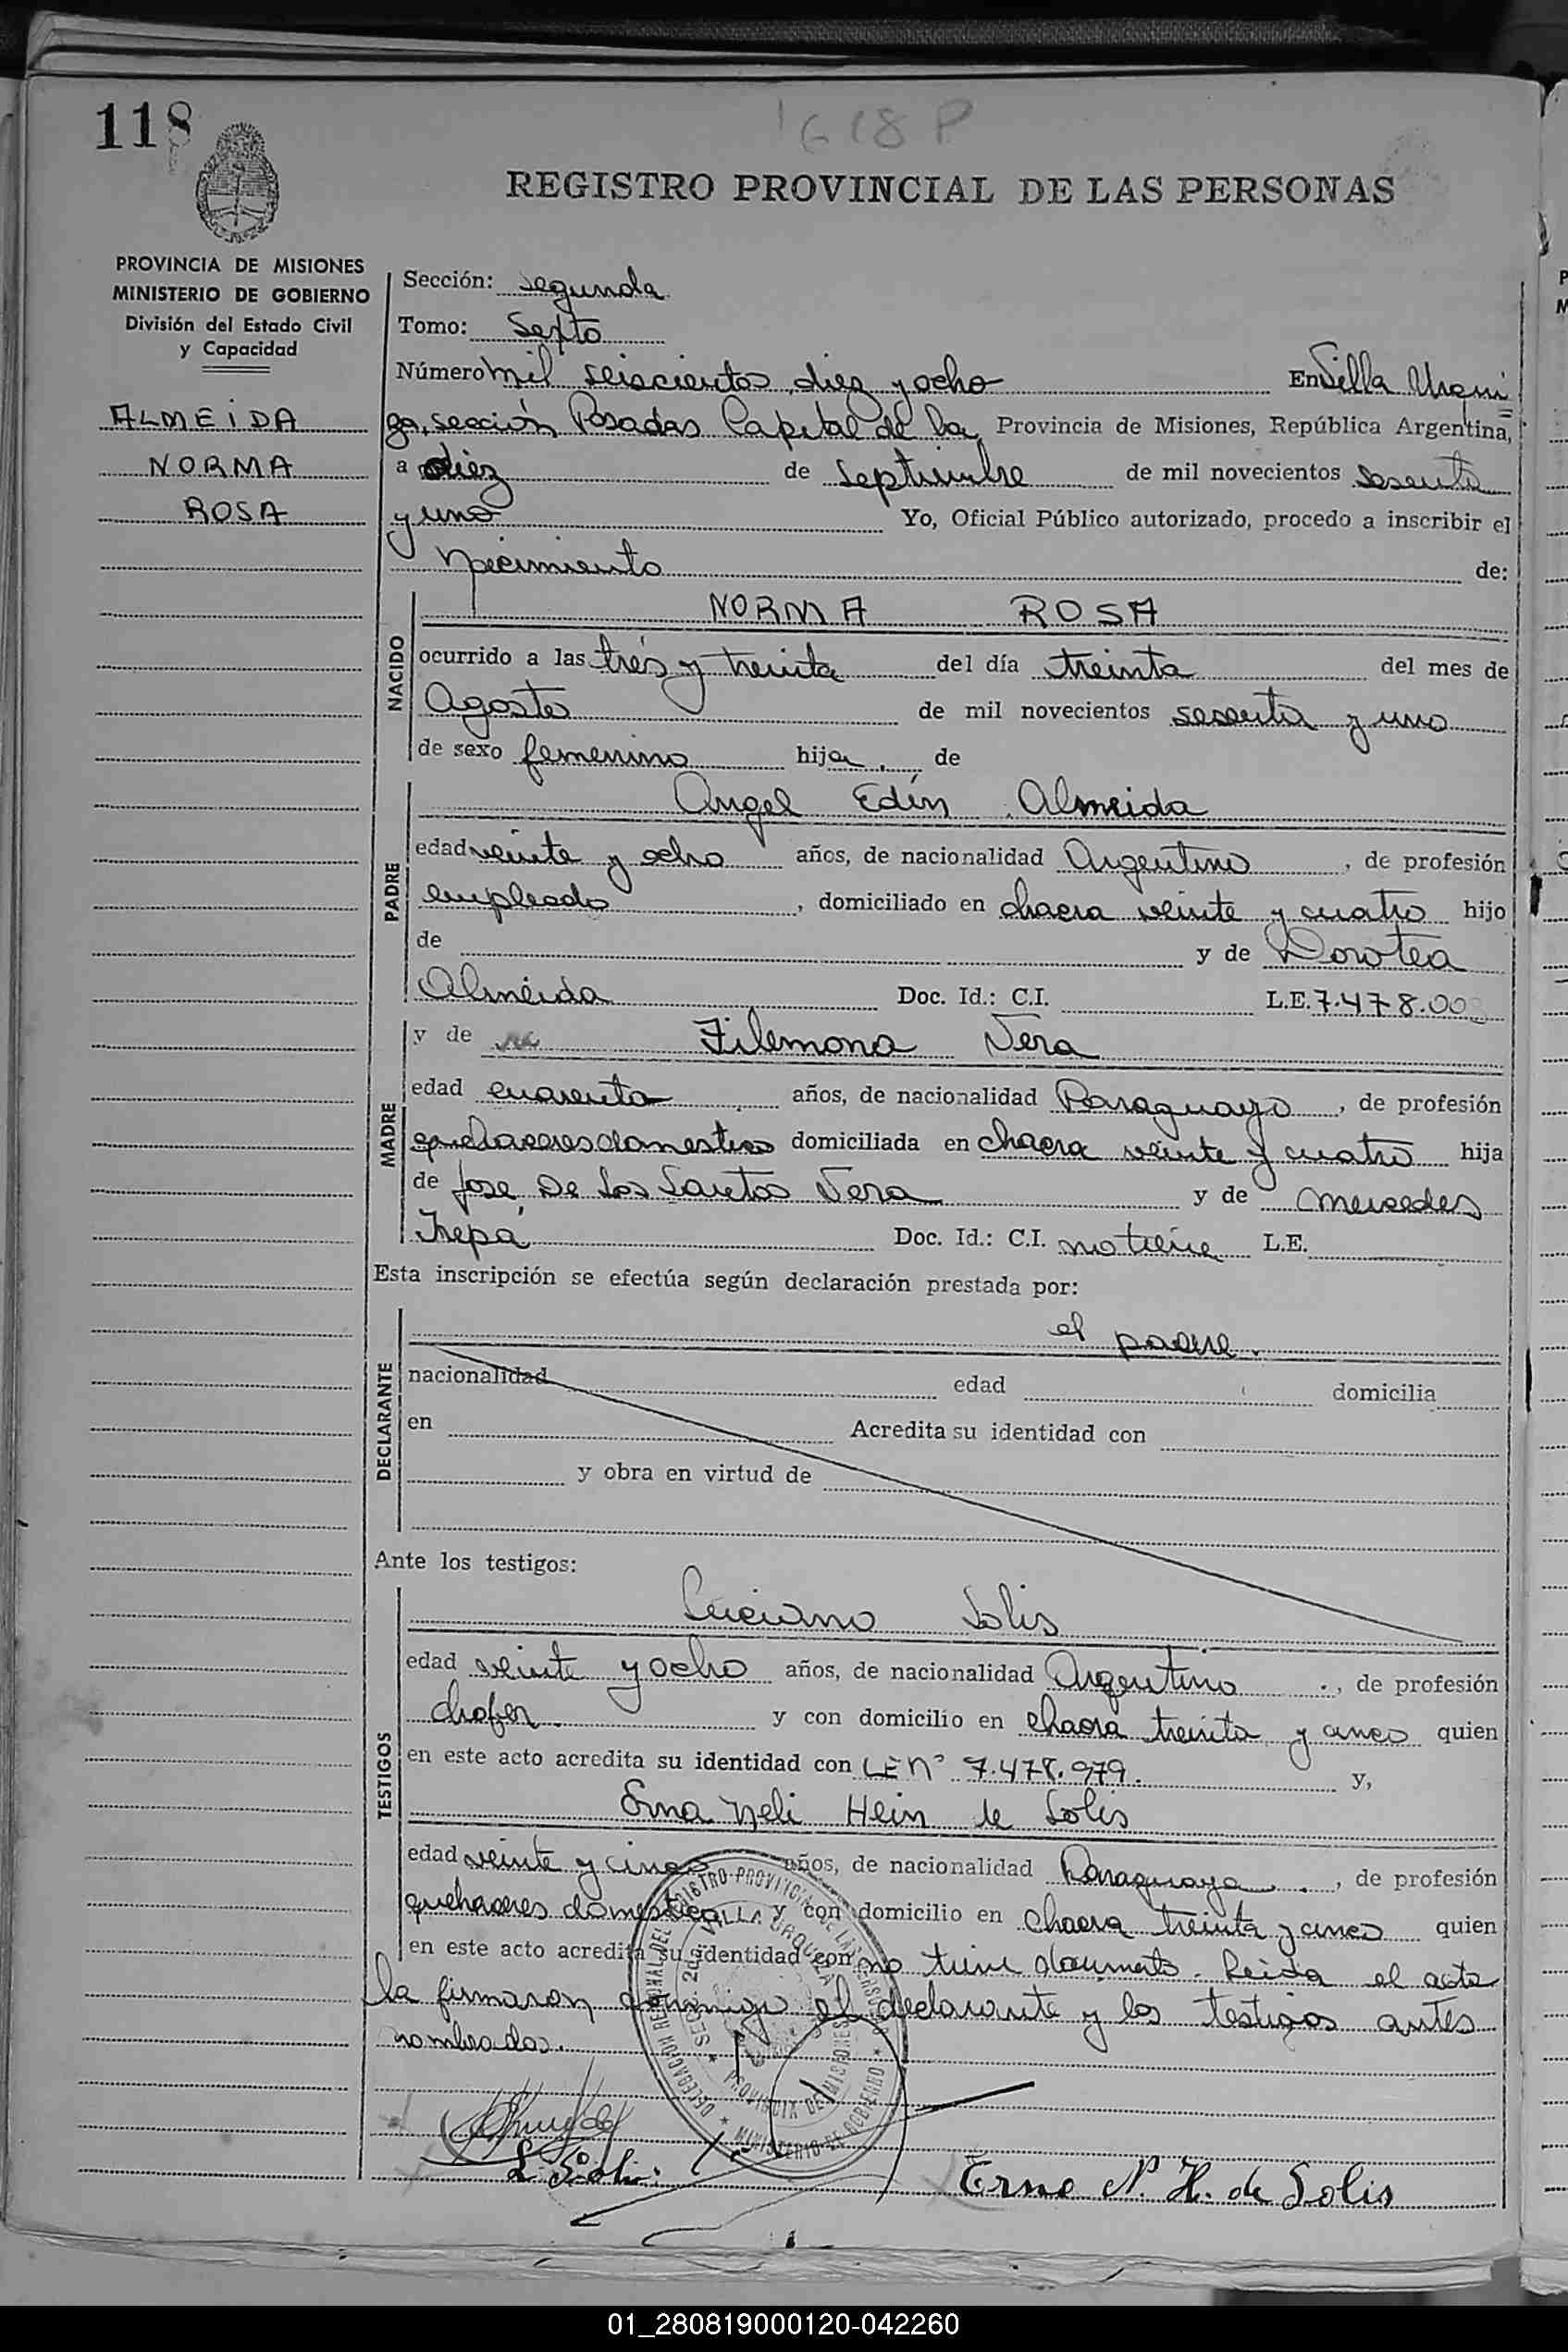 118
1618 P
REGISTRO PROVINCIAL DE LAS PERSONAS
PROVINCIA DE MISIONES
MINISTERIO DE GOBIERNO
División del Estado Civil
y Capacidad
ALMEIDA
NORMA
ROSA
Sección: segunda
Tomo: Sexto
Número mil seiscientos diez y ocho En Villa Urqui
za, sección Posadas Capital de la Provincia de Misiones, República Argentina,
a diez de Septiembre de mil novecientos sesenta
y uno Yo, Oficial Público autorizado, procedo a inscribir el
Nacimiento de:
NACIDO
NORMA ROSA
ocurrido a las tres y treinta del día treinta del mes de
Agosto de mil novecientos sesenta y uno
de sexo femenino hija de
PADRE
Angel Edín Almeida
edad veinte y ocho años, de nacionalidad Argentino, de profesión
empleado, domiciliado en chacra veinte y cuatro hijo
de y de Dorotea
Almeida Doc. Id.: C.I. L.E. 7.478.00
MADRE
y de Filemona Vera
edad cuarenta años, de nacionalidad Paraguaya, de profesión
quehaceres domesticos domiciliada en chacra veinte y cuatro hija
de Jose De Los Santos Vera y de Mercedes
Doc. Id.: C.I. no tiene L.E.
Esta inscripción se efectúa según declaración prestada por:
DECLARANTE
el padre.
nacionalidad edad domicilia
en Acredita su identidad con
y obra en virtud de
Ante los testigos:
TESTIGOS
Luciano Solis
edad veinte y ocho años, de nacionalidad Argentino, de profesión
chofer. y con domicilio en chacra treinta y cinco quien
en este acto acredita su identidad con LE Nº 7.478.979. y,
Erna Neli Hein de Solis
edad veinte y cinco años, de nacionalidad Paraguaya, de profesión
quehaceres domesticos y con domicilio en chacra treinta y cinco quien
en este acto acredita su identidad con no tiene documento. Leida el acta
la firmaron conmigo el declarante y los testigos antes
nombrados.
DELEGACION REGIONAL DEL REGISTRO PROVINCIAL DE LAS PERSONAS
MINISTERIO DE GOBIERNO
SECC. 2da. VILLA URQUIZA
PROVINCIA DE MISIONES
L. Solis
Erna N. H. de Solis
01_280819000120-042260